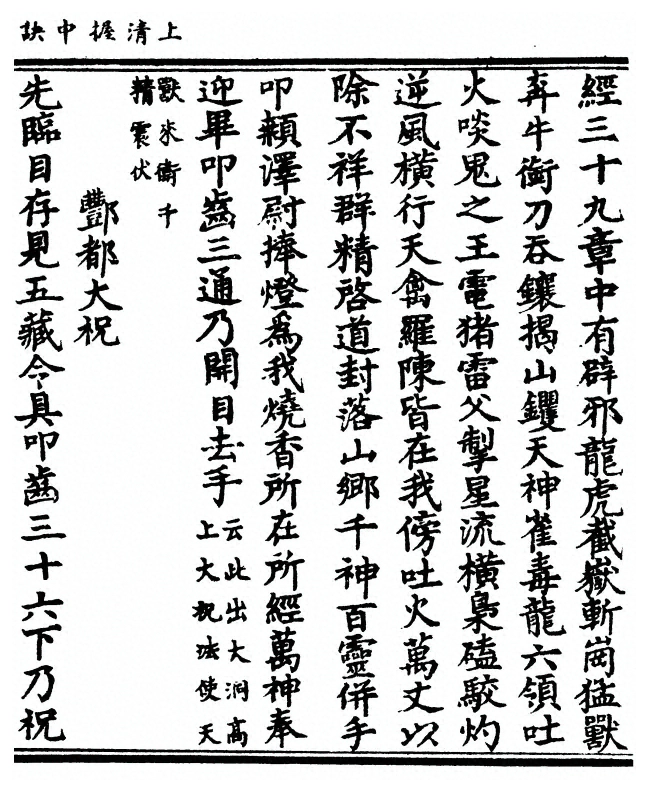 上清握中訣
經三十九章中有辟邪龍虎截嶽斬崗猛獸
奔牛銜刀吞鑲揭山钁天神雀毒龍六領吐
火啖鬼之王電猪雷父掣星流橫梟磕駮灼
逆風橫行天禽羅陳皆在我傍吐火萬丈以
除不祥群精啓道封落山鄉千神百靈併手
叩顙澤尉捧燈為我燒香所在所經萬神奉
迎畢叩齒三通乃開目去手云此出大洞高
上大祝法使天
獸來衛千
精震伏
酆都大祝
先臨目存見五藏令具叩齒三十六下乃祝